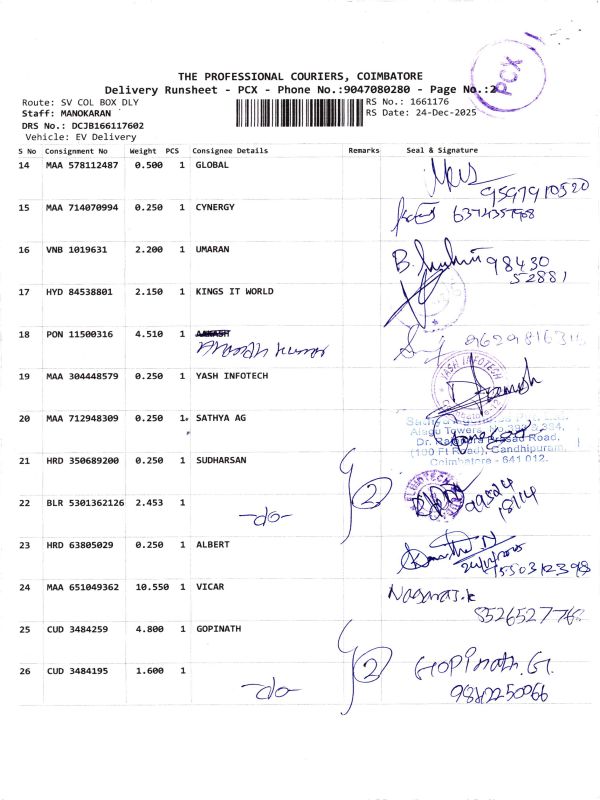 PCX
THE PROFESSIONAL COURIERS, COIMBATORE
Delivery Runsheet - PCX - Phone No.:9047080280 - Page No.:2
Route: SV COL BOX DLY RS No.: 1661176
Staff: MANOKARAN RS Date: 24-Dec-2025
DRS No.: DCJB166117602
Vehicle: EV Delivery
S No Consignment No Weight PCS Consignee Details Remarks Seal & Signature
14 MAA 578112487 0.500 1 GLOBAL
9597910520
15 MAA 714070994 0.250 1 CYNERGY
16 VNB 1019631 2.200 1 UMARAN 98430
52881
17 HYD 84538801 2.150 1 KINGS IT WORLD
18 PON 11500316 4.510 1 AAKASH
19 MAA 304448579 0.250 1 YASH INFOTECH
YASH INFOTECH
20 MAA 712948309 0.250 1 SATHYA AG
Alagu Towers,
Road,
(100 Ft Road), Gandhipuram,
Coimbatore - 641 012.
21 HRD 350689200 0.250 1 SUDHARSAN
22 BLR 5301362126 2.453 1 -do- 2 99524
18114
23 HRD 63805029 0.250 1 ALBERT
24 MAA 651049362 10.550 1 VICAR Nagaraj.K
8526527768
25 CUD 3484259 4.800 1 GOPINATH
26 CUD 3484195 1.600 1 -do- 2 Gopinath.G.